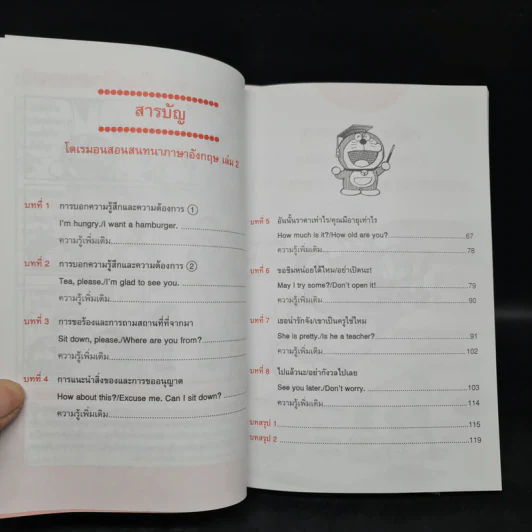 สารบัญ
โดเรมอนสอนสนทนาภาษาอังกฤษ เล่ม 2
บทที่ 1 การบอกความรู้สึกและความต้องการ ①
I'm hungry./I want a hamburger. ....................
ความรู้เพิ่มเติม....................
บทที่ 2 การบอกความรู้สึกและความต้องการ ②
Tea, please./I'm glad to see you. ....................
ความรู้เพิ่มเติม....................
บทที่ 3 การขอร้องและการถามสถานที่ที่จากมา
Sit down, please./Where are you from?....................
ความรู้เพิ่มเติม....................
บทที่ 4 การแนะนำสิ่งของและการขออนุญาต
How about this?/Excuse me. Can I sit down? ..........
ความรู้เพิ่มเติม....................
บทที่ 5 อันนั้นราคาเท่าไร/คุณมีอายุเท่าไร
How much is it?/How old are you?....................67
ความรู้เพิ่มเติม....................78
บทที่ 6 ขอชิมหน่อยได้ไหม/อย่าเปิดนะ!
May I try some?/Don't open it!....................79
ความรู้เพิ่มเติม....................90
บทที่ 7 เธอน่ารักจัง/เขาเป็นครูใช่ไหม
She is pretty./Is he a teacher?....................91
ความรู้เพิ่มเติม....................102
บทที่ 8 ไปแล้วนะ/อย่ากังวลไปเลย
See you later./Don't worry. ....................103
ความรู้เพิ่มเติม....................114
บทสรุป 1....................115
บทสรุป 2....................119